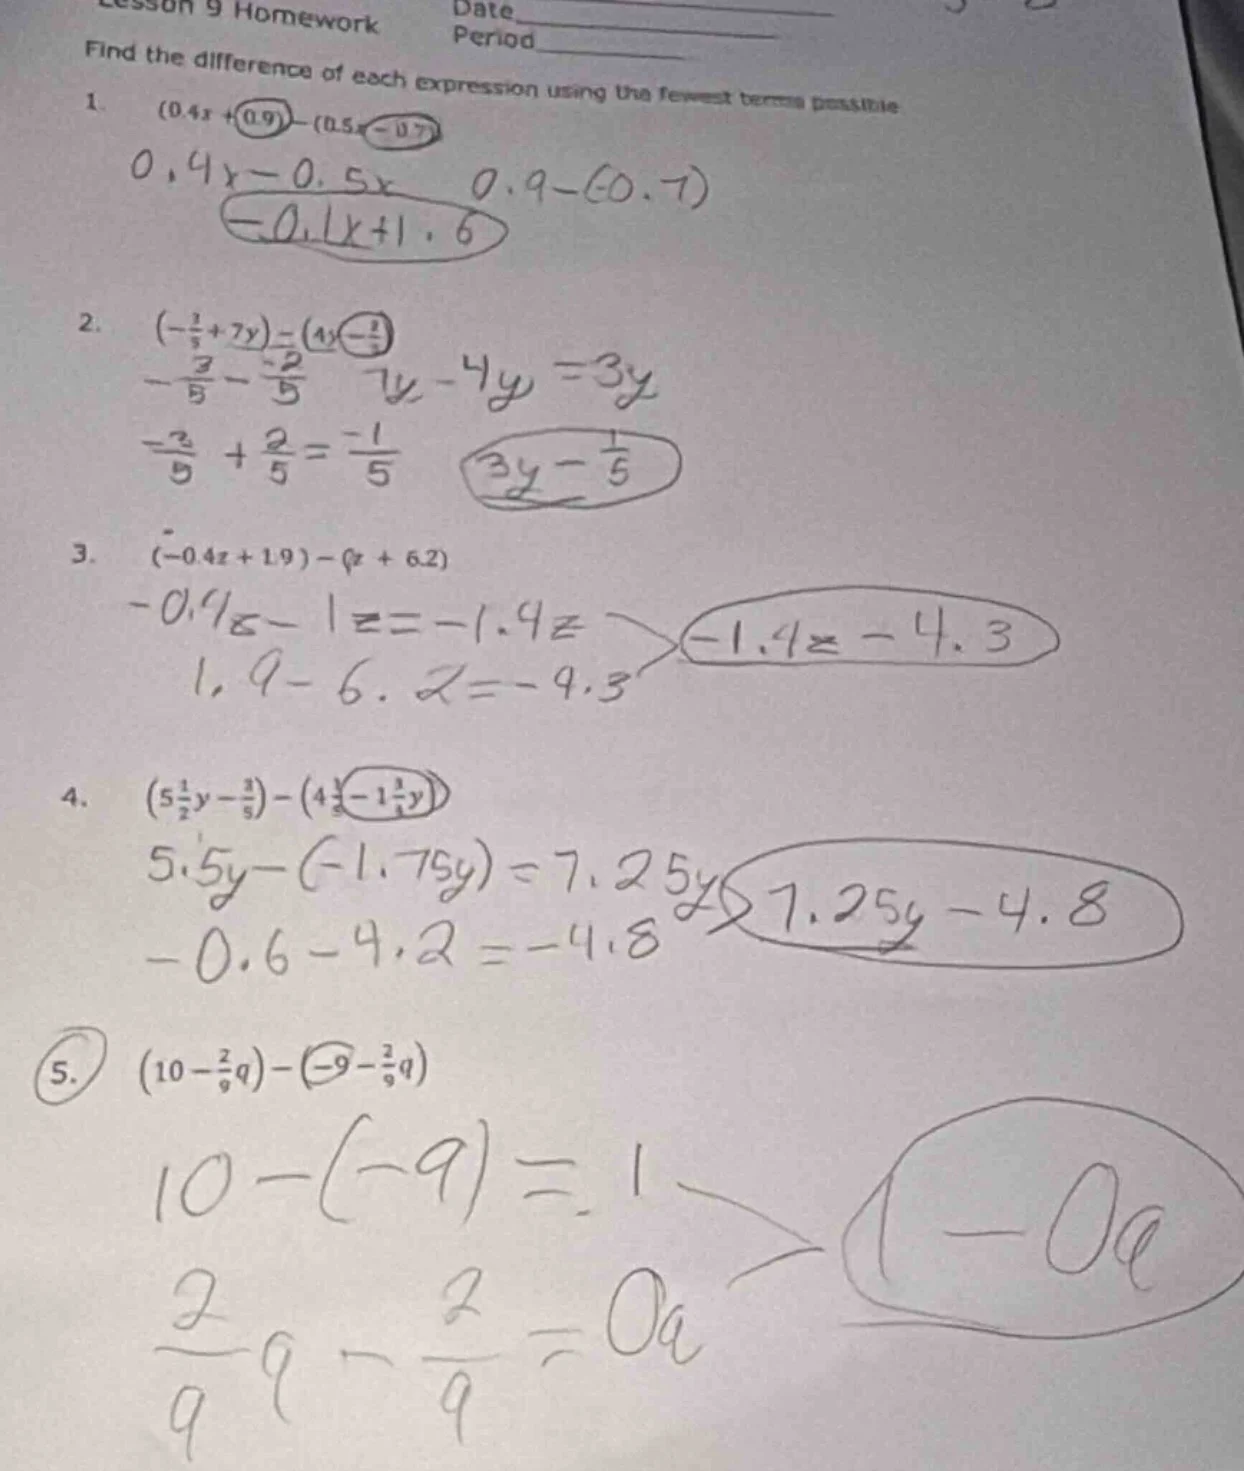 Lesson 9 Homework
Date
Period
Find the difference of each expression using the fewest terms possible
1. (0.4x + 0.9) - (0.5x - 0.7)
0.4x - 0.5x 0.9 - (-0.7)
-0.1x + 1.6
2. (-3/5 + 7y) - (4y - 2/5)
-3/5 - -2/5 7y - 4y = 3y
-3/5 + 2/5 = -1/5 3y - 1/5
3. (-0.4z + 1.9) - (z + 6.2)
-0.4z - 1z = -1.4z -1.4z - 4.3
1.9 - 6.2 = -4.3
4. (5 1/2 y - 3/5) - (4 1/5 - 1 3/4 y)
5.5y - (-1.75y) = 7.25y 7.25y - 4.8
-0.6 - 4.2 = -4.8
5. (10 - 2/9 q) - (-9 - 2/9 q)
10 - (-9) = 1 1 - 0q
2/9 q - 2/9 = 0q